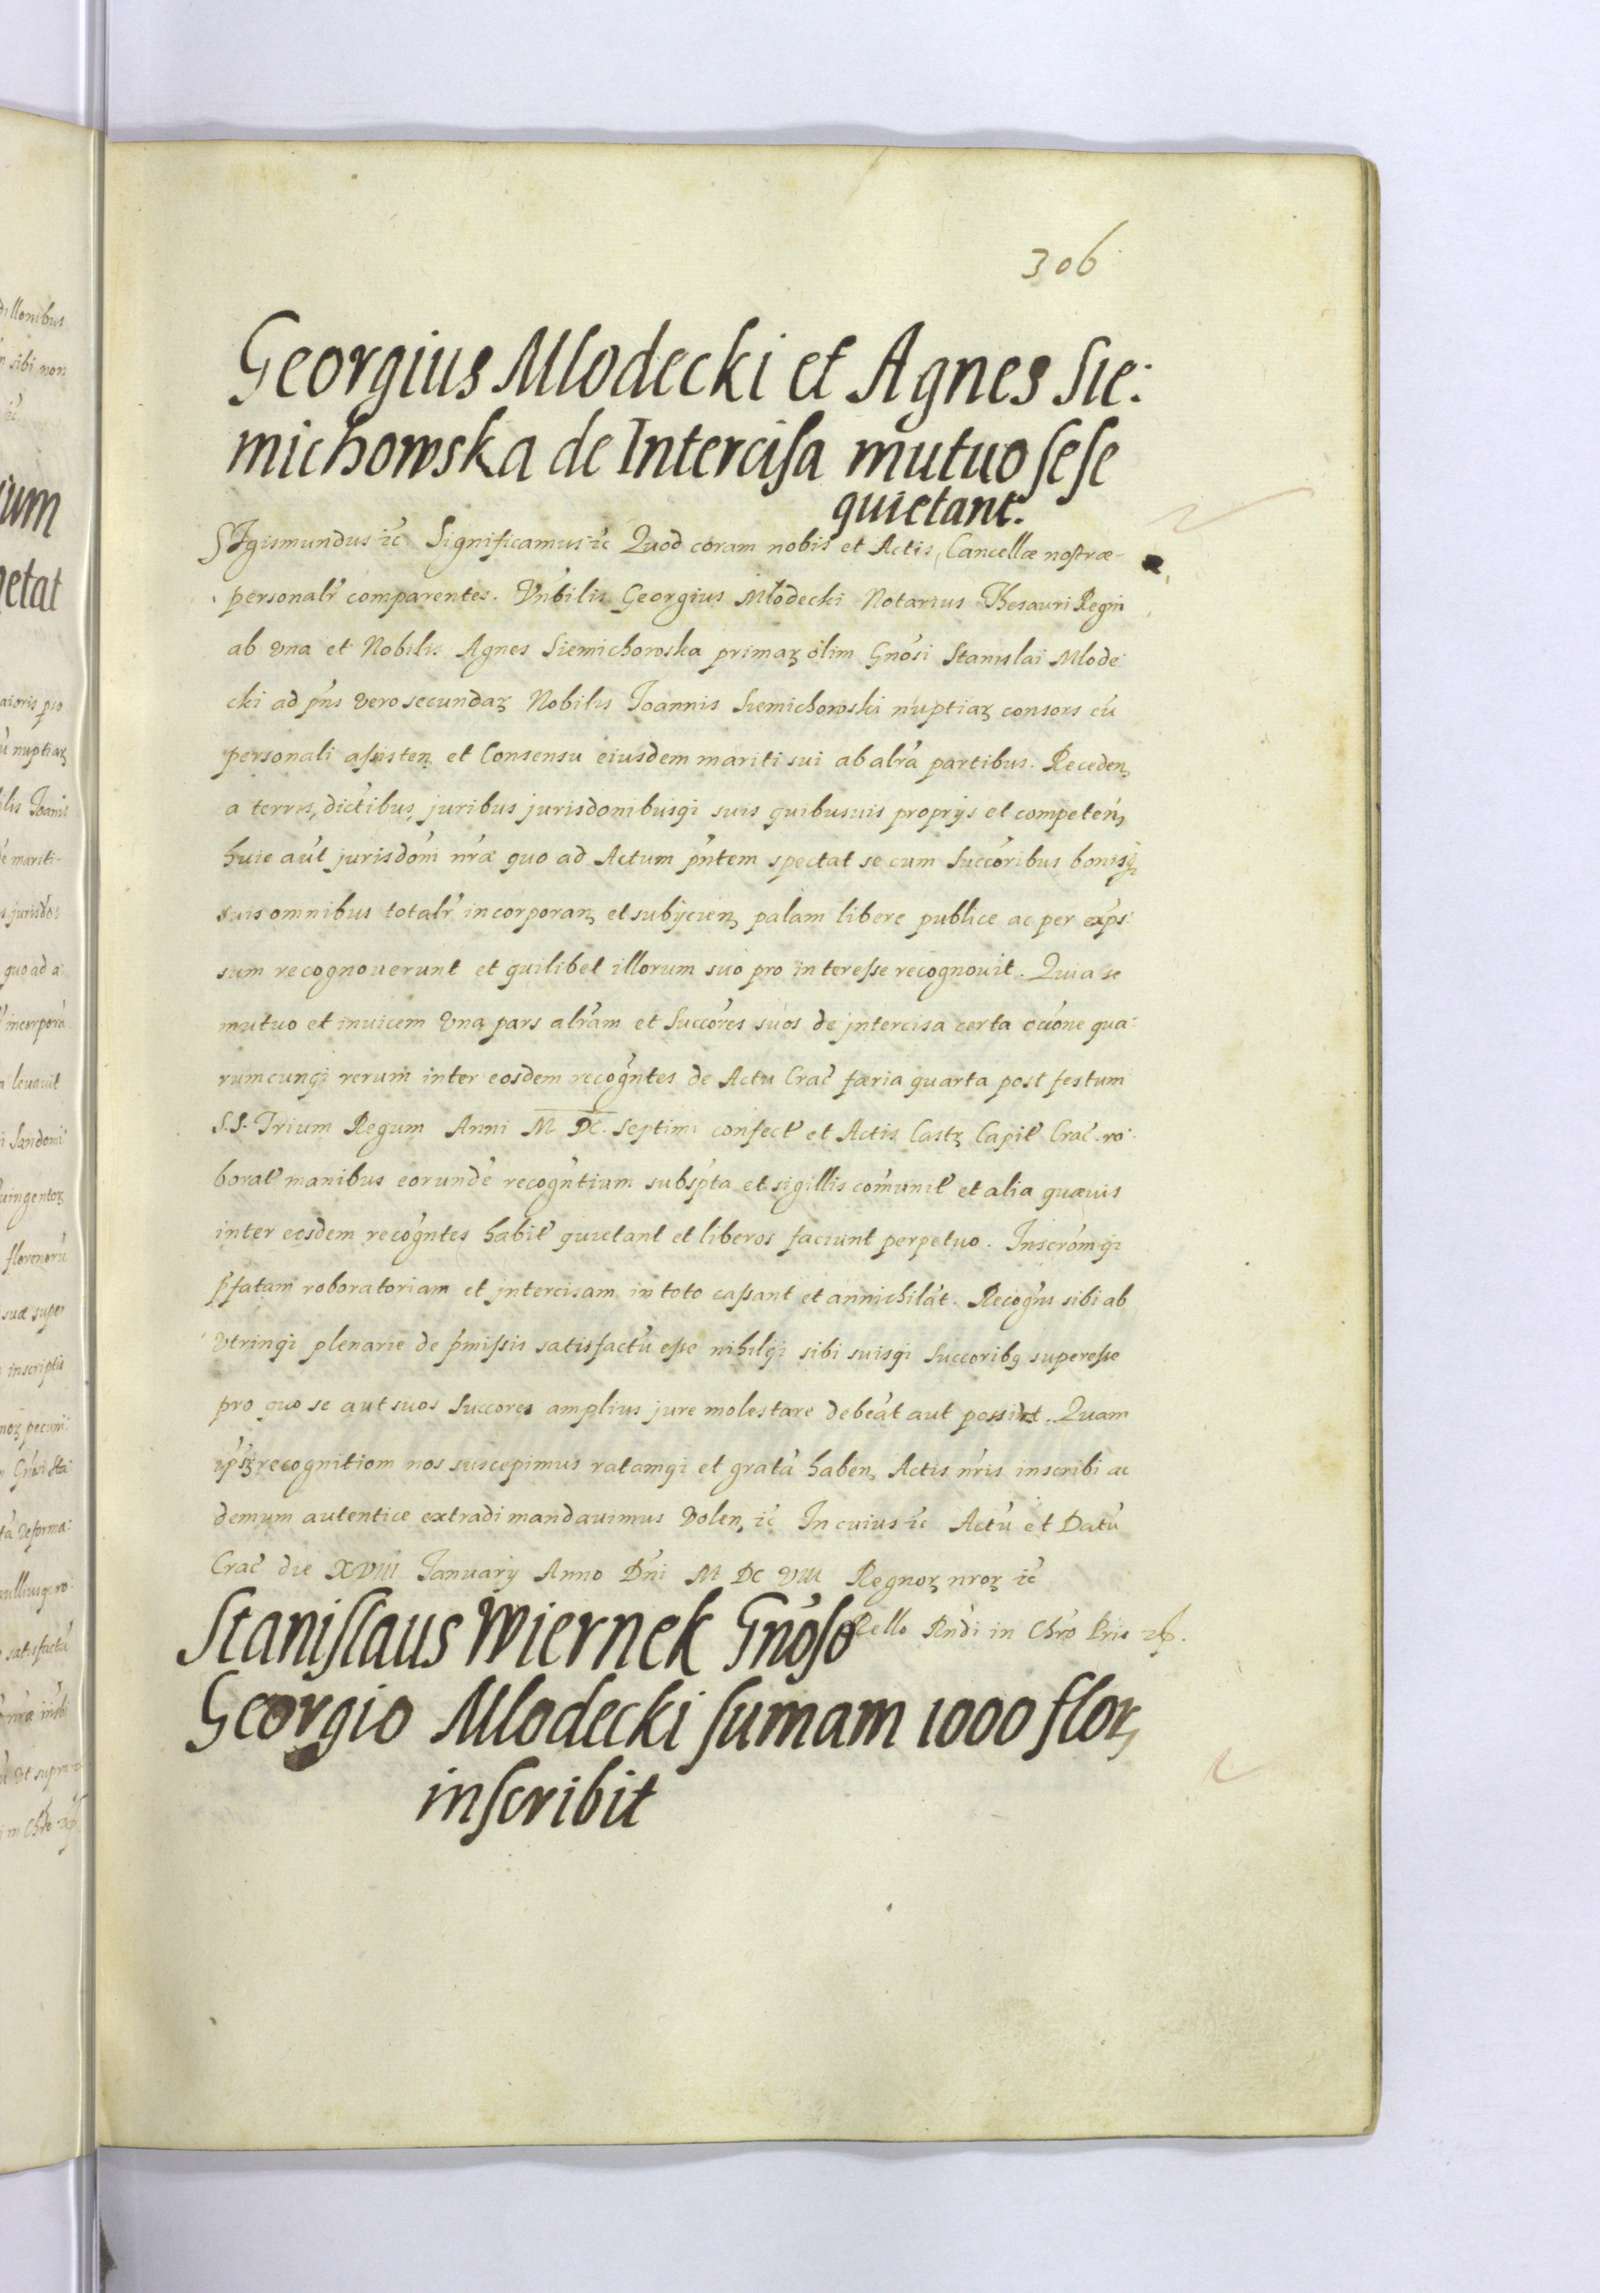 306
Georgius Mlodecki et Agnes Sie:
michowska de Intercisa mutuo sese
quietant.
SIgismundus ic̃ Significamus ic̃ Quod coram nobis et Actis Cancellæ nostræ
personalr̃ comparentes. Vn̄bilis Georgius Młodecki Notarius Thesauri Regni
ab vna et Nobilis Agnes Siemichowska primaꝝ olim Gn̄osi Stanislai Mlode
cki ad pn̄s vero secundaꝝ Nobilis Joannis Siemichowski nuptiaꝝ consors cū
personali assisten. et Consensu eiusdem mariti sui ab alrã partibus. Receden.
a terris, dictibus, juribus jurisdonibusqi suis quibusuis proprijs et competen̄,
huic aut̄ jurisdoni nr̄æ quo ad Actum pn̄tem spectat se cum Succoribus bonisqi
suis omnibus totalr̃ incorporan. et subijcien. palam libere publice ac per exp̄s:
sum recognouerunt et quilibet illorum suo pro interesse recognouit. Quia se
mutuo et inuicem vna pars alrãm et Succores suos de jntercisa certa
rumcunqi rerum inter eosdem recogn̄tes de Actu Crac̃ færia quarta post festum
S.S. Trium Regum Anni M DC. septimi confect̃ et Actis Castꝝ Capit̃ Crac̃. ro:
borat̃ manibus eorundē recogn̄tium subsp̄ta et sigillis com̄unit̃ et alia quævis
inter eosdem recogn̄tes habit̃ quietant et liberos faciunt perpetuo. Inscrom̄qi
p̄fatam roboratoriam et jntercisam in toto cassant et annichilāt. Recogn̄s sibi ab
vtrinqi plenarie de p̄missis satisfactū esse nihilqi sibi suisqi Succoribꝫ superesse
pro quo se aut suos Succores amplius jure molestare debeāt aut possint. Quam
recognitiom nos suscepimus ratamqi et gratā haben. Actis nr̄is inscribi ac
demum autentice extradi mandauimus Volen. ic̃ In cuius ic̃ Actū et Datū
Crac̃ die XVIII January Anno Dn̄i M DC VIII Regnoꝝ nroꝝ ic̃
Rello Rn̄di in Chr̄o Pris
Stanislaus Wiernek Gn̄oso
Georgio Mlodecki sumam 1000 floꝝ
inscribit